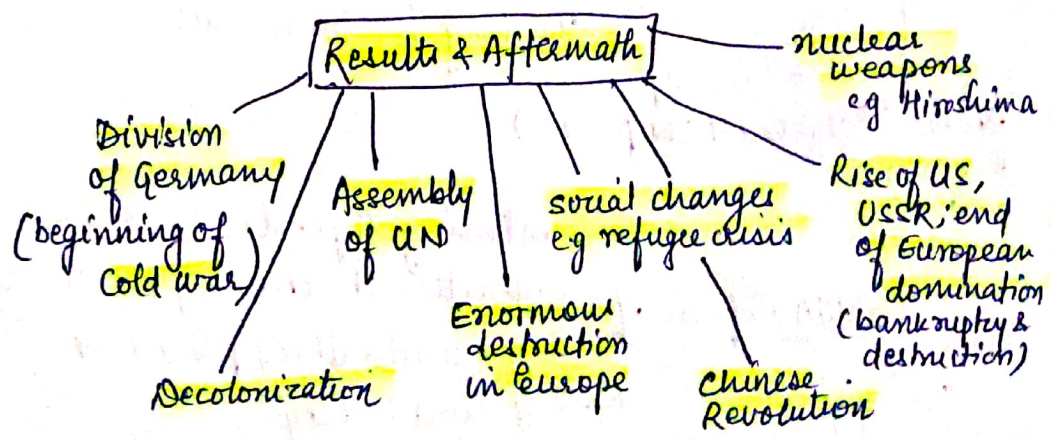 Results & Aftermath
nuclear
weapons
eg Hiroshima
Division
of Germany
(beginning of
Cold war)
Assembly
of UN
social changes
eg refugee crisis
Rise of US,
USSR; end
of European
domination
(bankruptcy &
destruction)
Enormous
destruction
in Europe
Decolonization
Chinese
Revolution